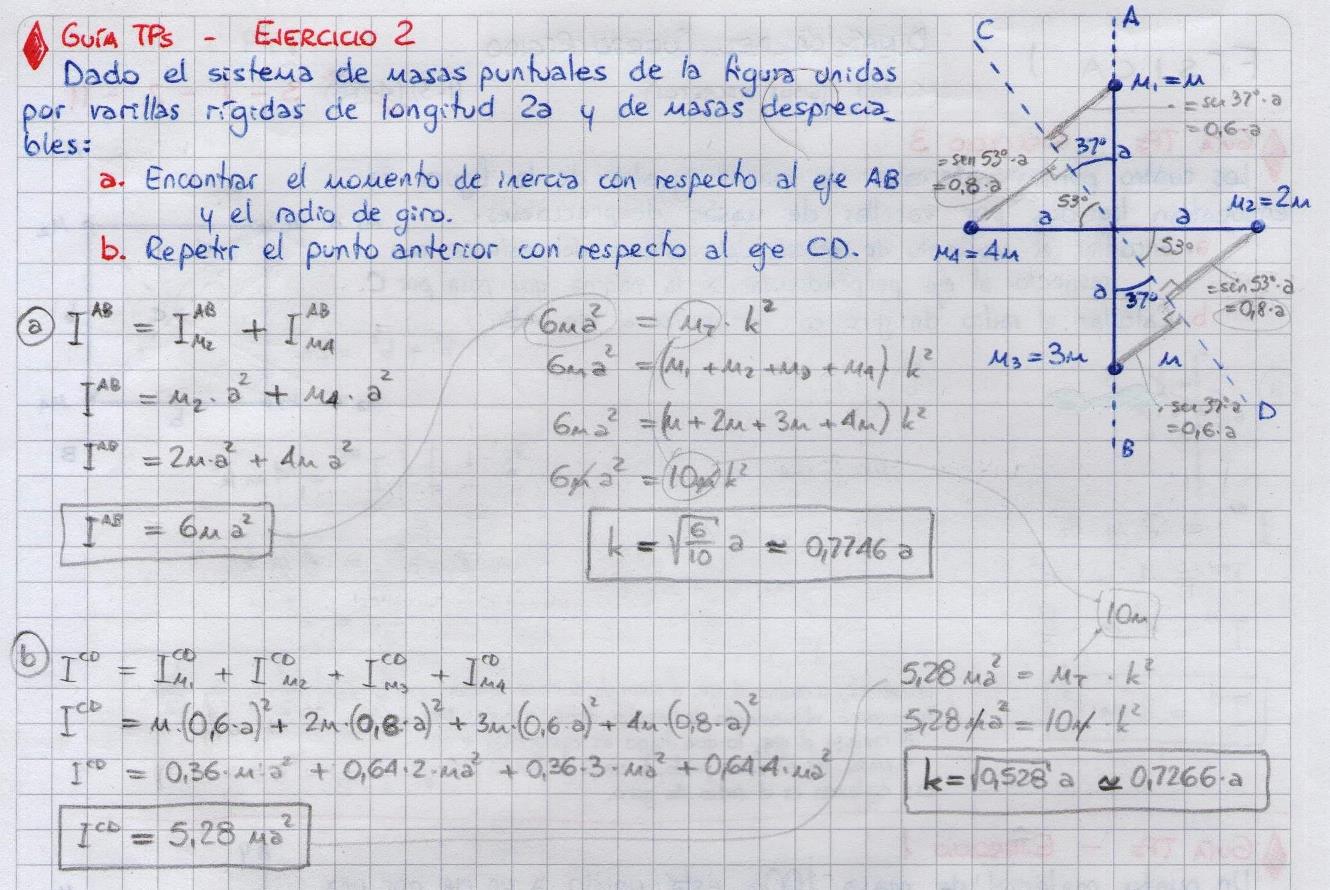 GUÍA TPs - EJERCICIO 2
Dado el sistema de masas puntuales de la figura unidas
por varillas rígidas de longitud 2a y de masas desprecia_
bles:
a. Encontrar el momento de inercia con respecto al eje AB
y el radio de giro.
b. Repetir el punto anterior con respecto al eje CD.
C
A
m₁ = m
= sen 37° · a
= 0,6 · a
37°
a
= sen 53° · a
= 0,8 · a
53°
a
a
m₂ = 2m
m₄ = 4m
53°
a
37°
= sin 53° · a
= 0,8 · a
m₃ = 3m
m
sen 37° · a
= 0,6 · a
D
B
ⓐ I^AB = I^AB_m₂ + I^AB_m₄
I^AB = m₂ · a² + m₄ · a²
I^AB = 2m·a² + 4m a²
I^AB = 6m a²
6ma² = m_T · k²
6ma² = (m₁ + m₂ + m₃ + m₄) k²
6ma² = (m + 2m + 3m + 4m) k²
6ma² = 10m k²
k = √(6/10) a ≈ 0,7746 a
ⓑ I^CD = I^CD_m₁ + I^CD_m₂ + I^CD_m₃ + I^CD_m₄
I^CD = m·(0,6·a)² + 2m·(0,8·a)² + 3m·(0,6·a)² + 4m·(0,8·a)²
I^CD = 0,36·m·a² + 0,64·2·ma² + 0,36·3·ma² + 0,64·4·ma²
I^CD = 5,28 ma²
10m
5,28 ma² = m_T · k²
5,28 ma² = 10m · k²
k = √0,528 a ≃ 0,7266·a